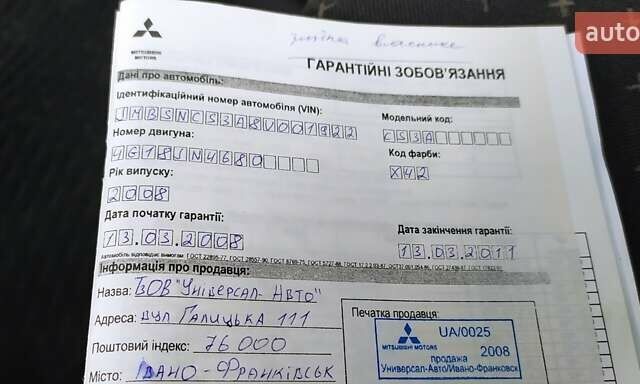 auto
зміна власника
MITSUBISHI
MOTORS
ГАРАНТІЙНІ ЗОБОВ'ЯЗАННЯ
Дані про автомобіль:
Ідентифікаційний номер автомобіля (VIN):
JMBSNCS3A8U001922
Модельний код:
CS3A
Номер двигуна:
4G18JN4680
Код фарби:
X42
Рік випуску:
2008
Дата початку гарантії:
13.03.2008
Дата закінчення гарантії:
13.03.2011
Автомобіль відповідає вимогам
Інформація про продавця:
Назва: ТзОВ "Універсал-Авто"
Адреса: вул Галицька 111
Поштовий індекс: 76000
Місто: Івано-Франківськ
Печатка продавця:
MITSUBISHI MOTORS
UA/0025
2008
продажа
Универсал-Авто/Ивано-Франковск